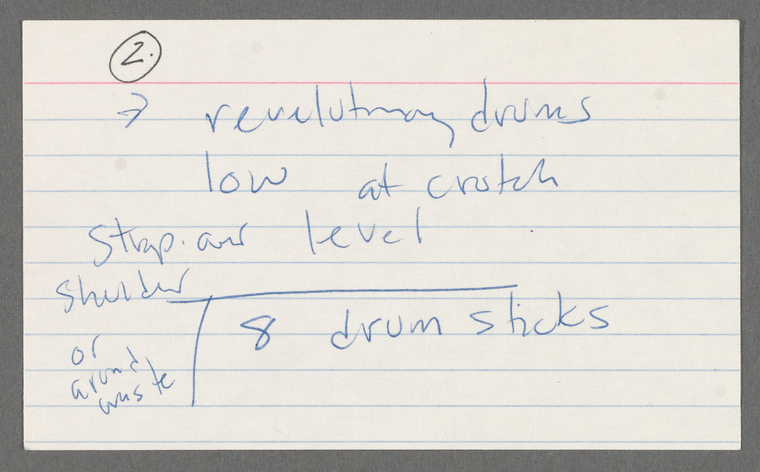 2.
→ revolutionary drums
low at crotch
strap over level
shoulder
8 drum sticks
or
around
waste